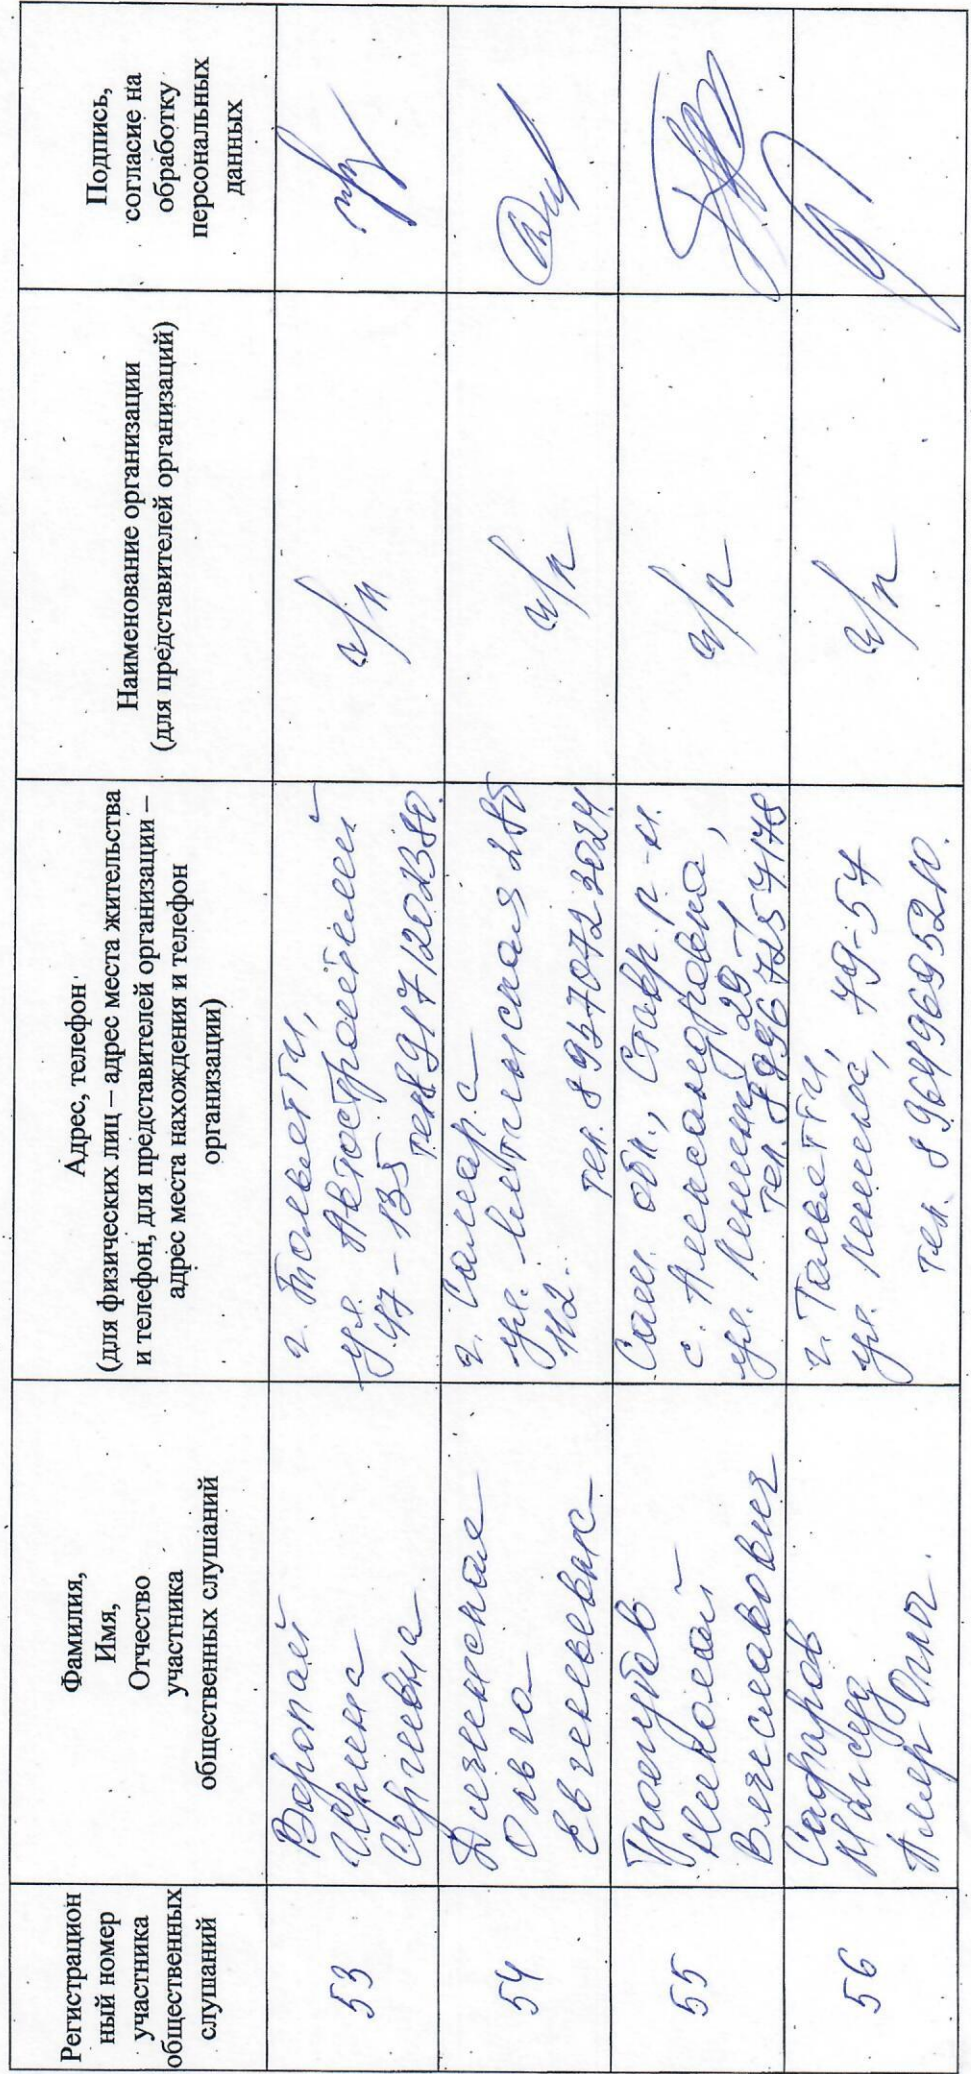 Регистрацион
ный номер
участника
общественных
слушаний
Фамилия,
Имя,
Отчество
участника
общественных слушаний
Адрес, телефон
(для физических лиц – адрес места жительства
и телефон, для представителей организации –
адрес места нахождения и телефон
организации)
Наименование организации
(для представителей организаций)
Подпись,
согласие на
обработку
персональных
данных
53
Воропай
Ирина
Сергеевна
г. Тольятти,
ул. Автостроителей
47-135
тел. 89171202380.
ч/п
54
Ольга
Евгеньевна
г. Самара
ул.
112.
тел. 89370723024
ч/п
55
Трегубов
Николай
Вячеславович
Сам. обл., Ставр. р-н.
с. Александровка,
ул. Ленина, 29-1
тел.
ч/п
56
Сафаров
Амир Оглы.
г. Тольятти,
ул. Ленина, 79-57
тел. 89649695210.
ч/п